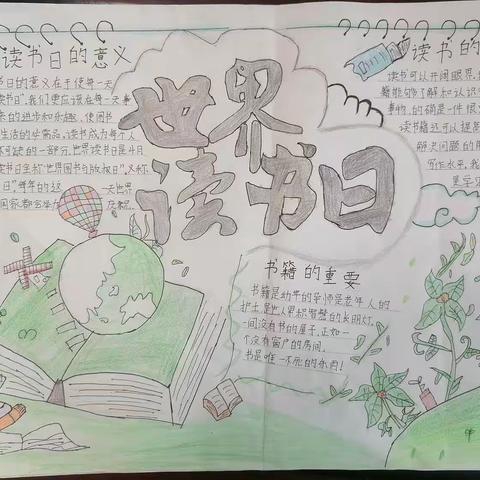 读书日的意义
书日的意义在于使每一天
读书日",我们更应该在每一天
来的进步和乐趣,使图书
生活的必需品,读书成为每个人
不可缺的一部分,世界读书日是4月
读书日全称"世界图书与版权日",又称
日",每年的这 一天世界
国家都会
世界
读书日
读书的
读书可以开阔眼界,
籍能够了解和认识
事物,的确是一件很
读书籍还可以提高
解决问题的
写作水平,我
书籍的重要
书籍是幼年的导师是老年人的
护士,是世人累积智慧的长明灯,
一间没有书的屋子,正如一
个没有窗户的房间,
书是唯一不死的东西!